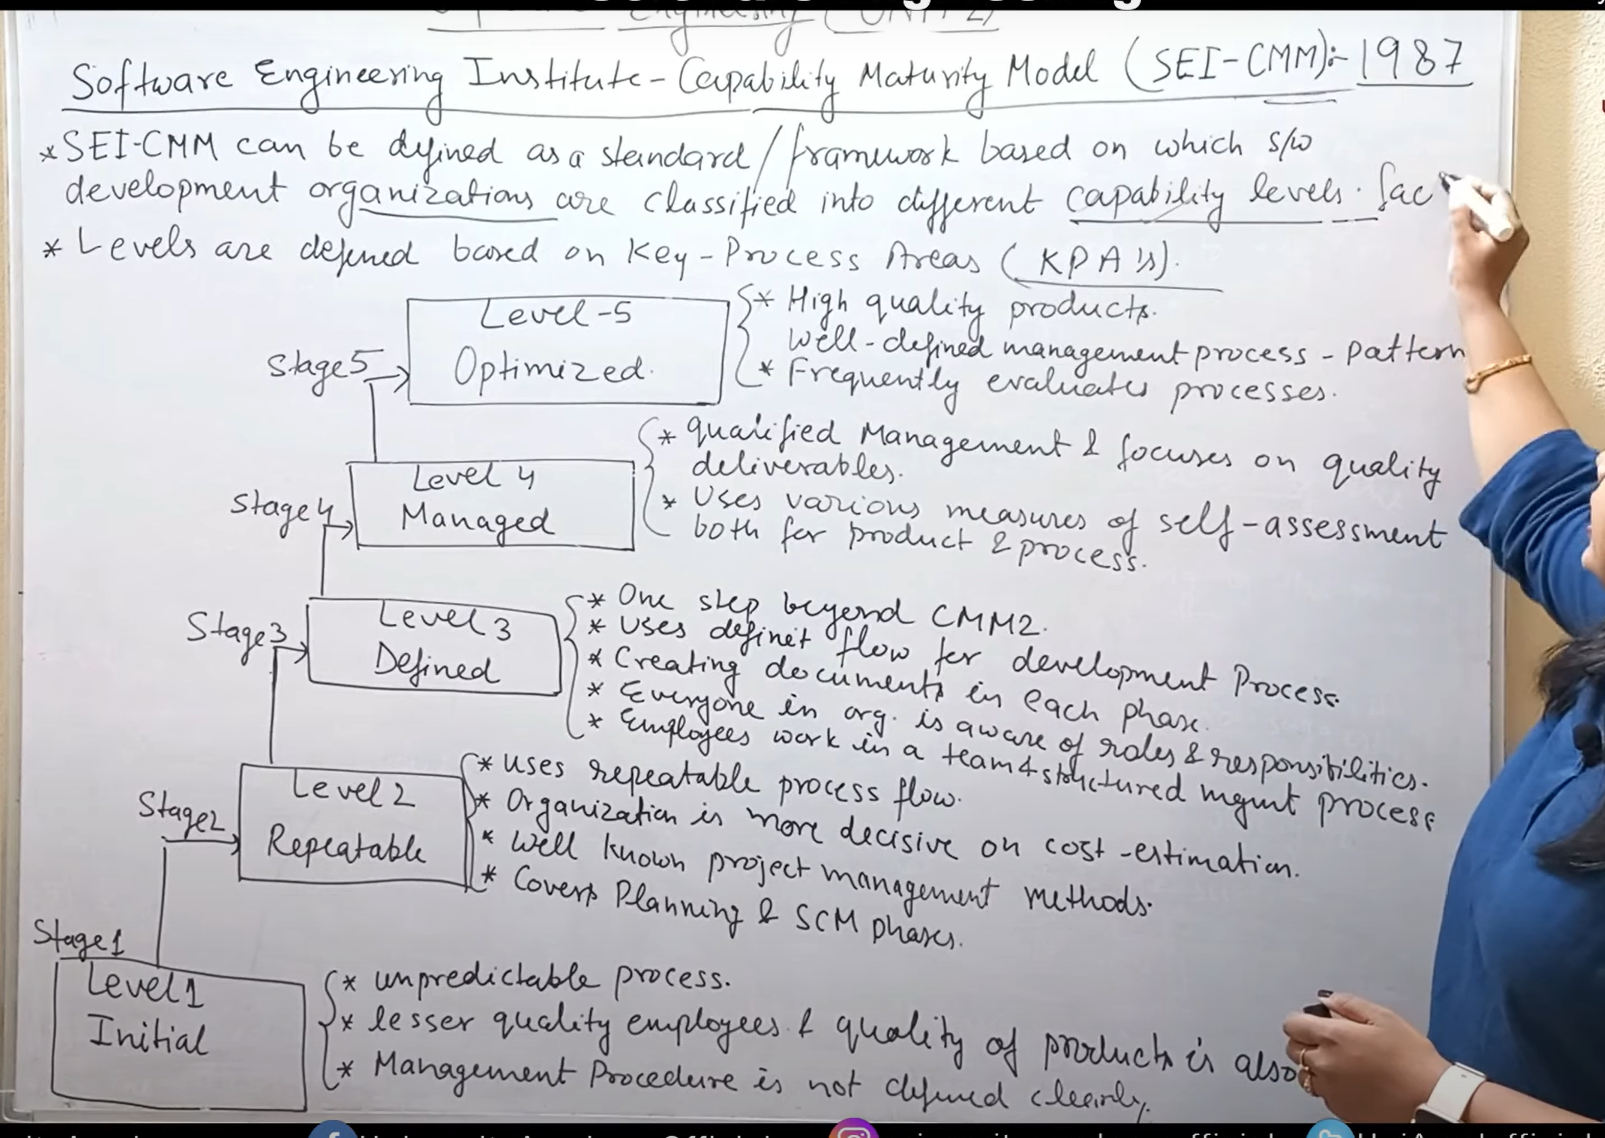 Engineering (UNIT-2)
Software Engineering Institute - Capability Maturity Model (SEI-CMM):- 1987
* SEI-CMM can be defined as a standard / framework based on which s/w
development organizations are classified into different capability levels. fac
* Levels are defined based on Key-Process Areas (KPA's).
Stage5
Level-5
Optimized.
* High quality products.
Well-defined management process - pattern
* Frequently evaluates processes.
Stage4
Level 4
Managed
* qualified Management & focuses on quality
deliverables.
* Uses various measures of self-assessment
both for product & process.
Stage3
Level 3
Defined
* One step beyond CMM2.
* Uses definit flow for development Process.
* Creating documents in each phase.
* Everyone in org. is aware of roles & responsibilities.
* Employees work in a team & structured mgmt process
Stage2
Level 2
Repeatable
* uses repeatable process flow.
* Organization is more decisive on cost-estimation.
* Well known project management methods.
* Covers Planning & SCM phases.
Stage1
Level 1
Initial
* unpredictable process.
* lesser quality employees & quality of products is also
* Management Procedure is not defined clearly.